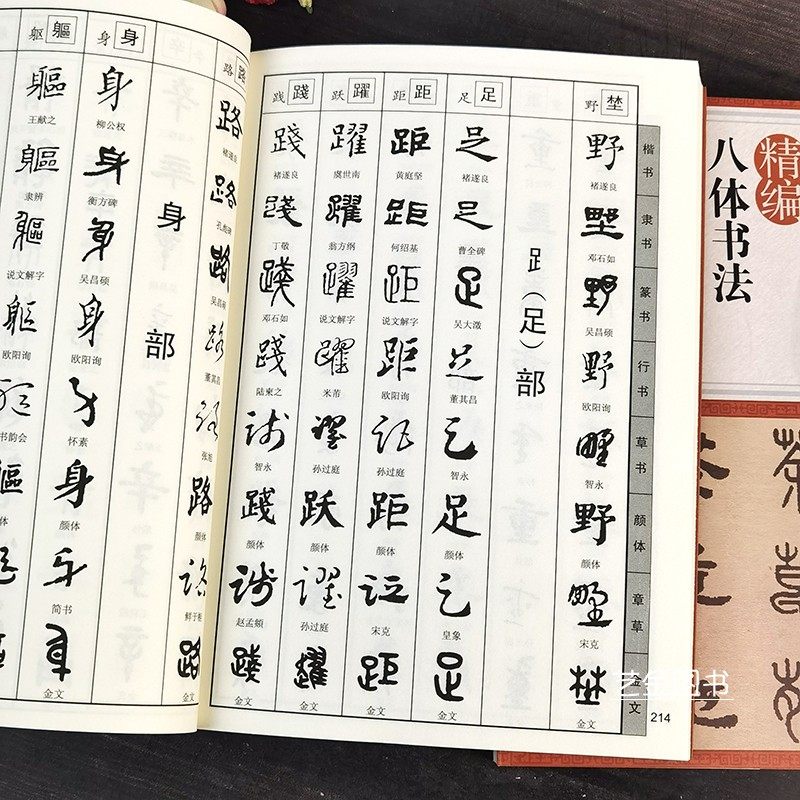 楷书
隶书
篆书
行书
草书
颜体
章草
金文
214
野 埜
野 褚遂良
野 邓石如
野 吴昌硕
野 欧阳询
野 智永
野 颜体
野 宋克
埜 金文
𧾷（足）部
足 足
足 褚遂良
足 曹全碑
足 吴大澂
足 董其昌
足 智永
足 颜体
足 皇象
足 金文
距 距
距 黄庭坚
距 何绍基
距 说文解字
距 欧阳询
距 孙过庭
距 颜体
距 宋克
距 金文
跃 躍
躍 虞世南
躍 翁方纲
躍 说文解字
躍 米芾
躍 孙过庭
跃 颜体
躍 孙过庭
躍 金文
践 踐
踐 褚遂良
踐 丁敬
踐 邓石如
踐 陆柬之
踐 智永
踐 颜体
踐 赵孟頫
踐 金文
路 路
路 褚遂良
路
路 吴昌硕
路 董其昌
路 张旭
路 颜体
路 鲜于枢
路 金文
身部
身 身
身 柳公权
身 衡方碑
身 吴昌硕
身 欧阳询
身 怀素
身 颜体
身 简书
身 金文
躯 軀
軀 王献之
軀 隶辨
軀 说文解字
軀 欧阳询
书韵会
精编
八体书法
艺美图书